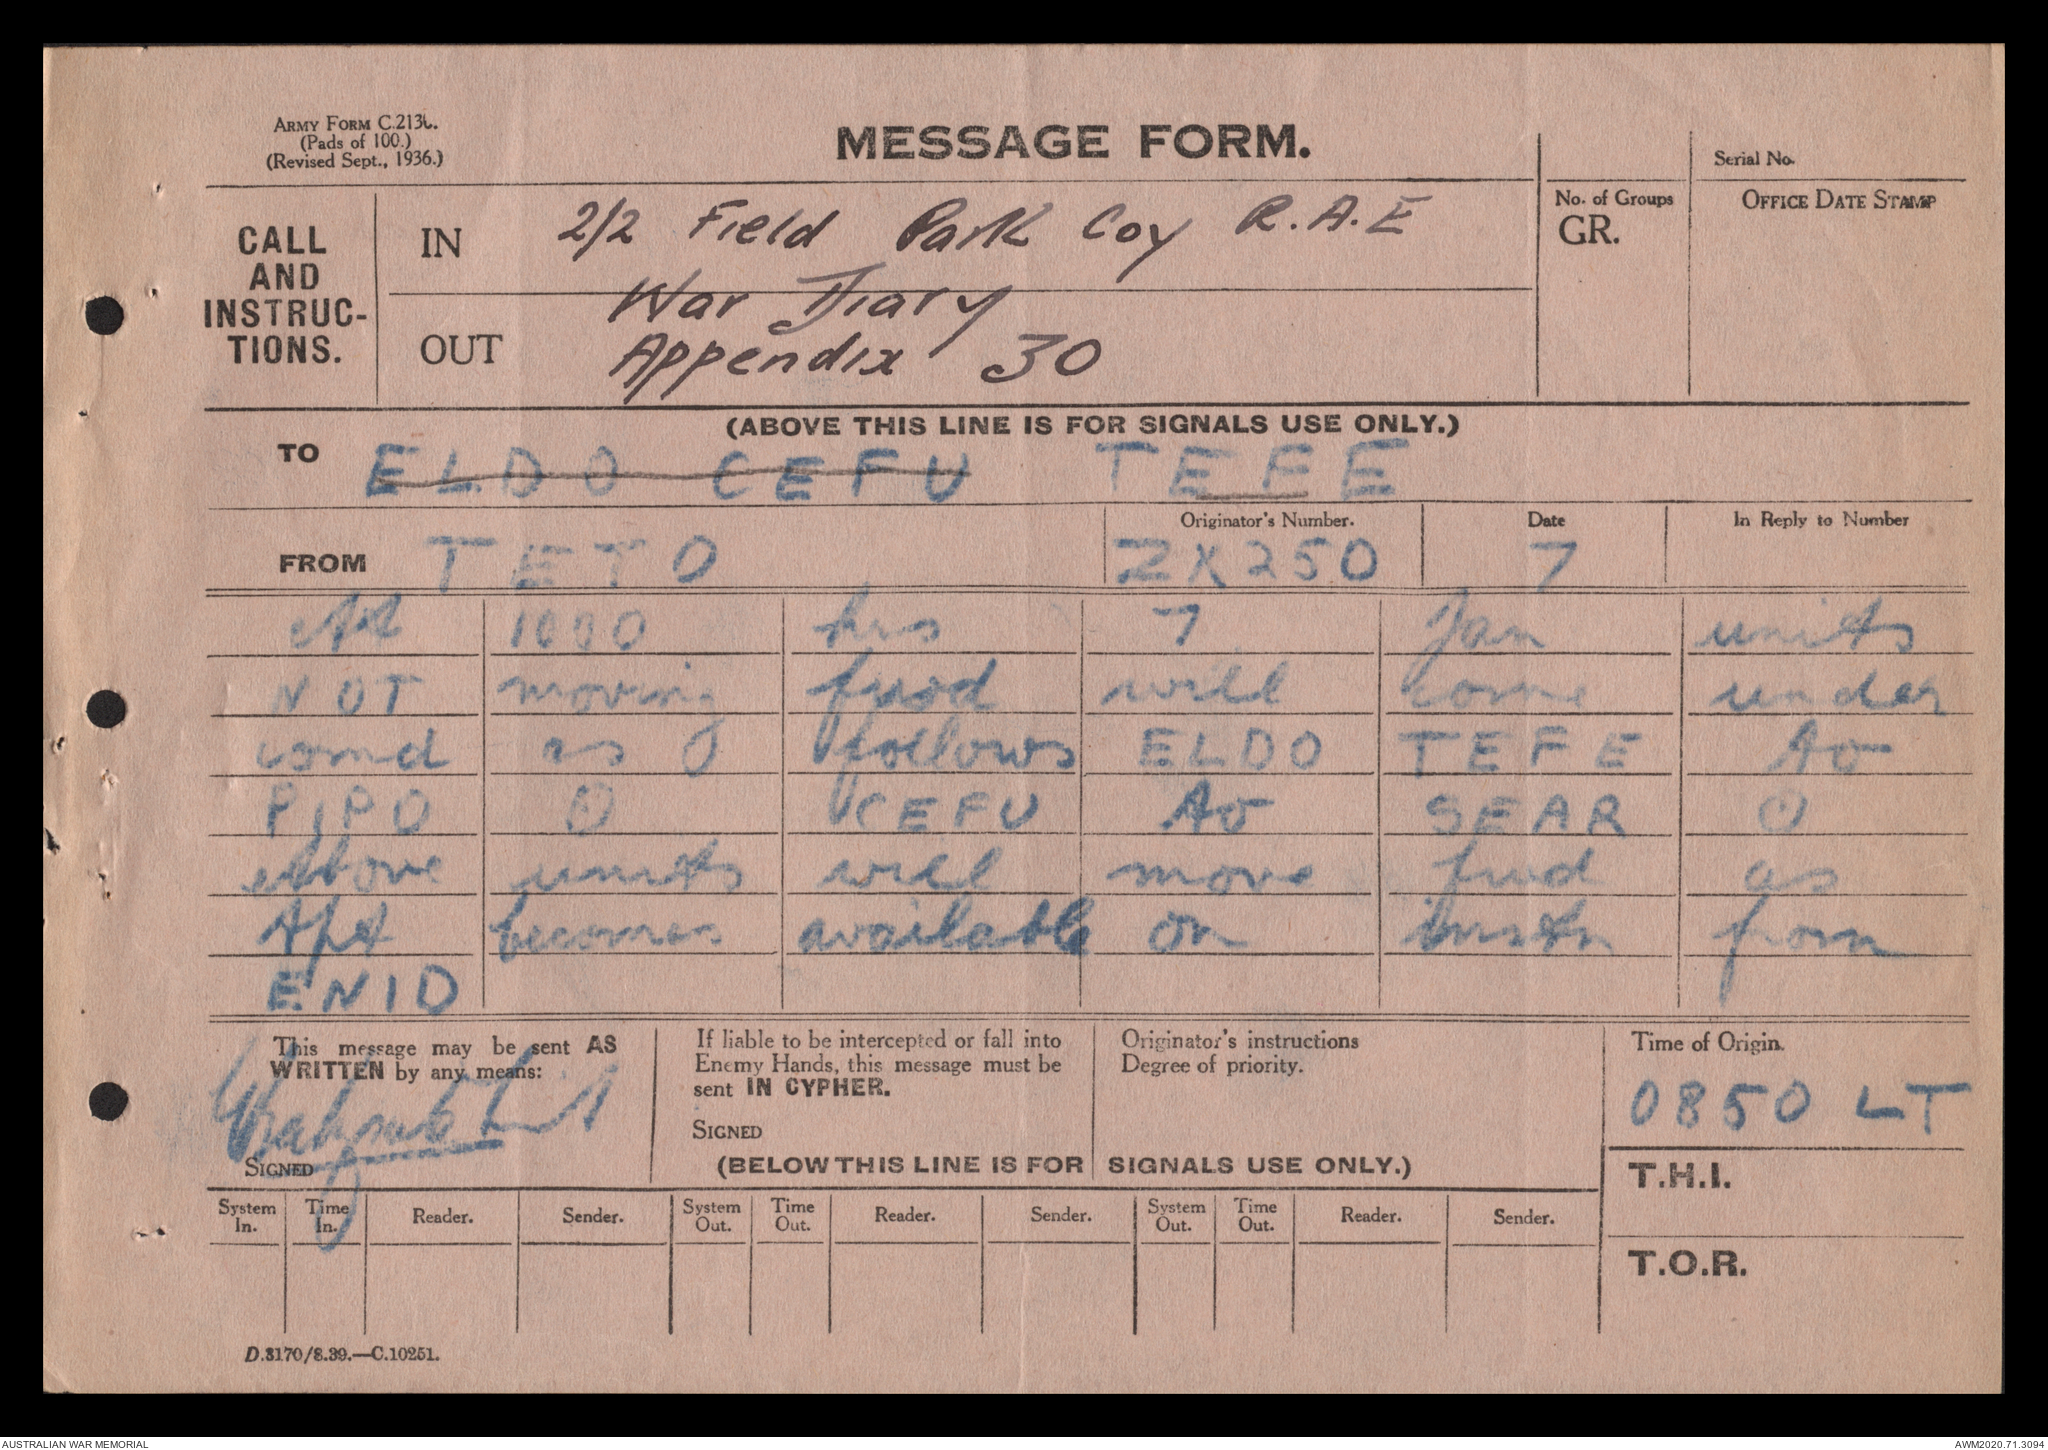 ARMY FORM C.2130.
(Pads of 100.)
(Revised Sept., 1936.)
MESSAGE FORM.
Serial No.
No. of Groups
GR.
OFFICE DATE STAMP
CALL
AND
INSTRUC-
TIONS.
IN
2/2 Field Park Coy R.A.E
War Diary
OUT
Appendix 30
(ABOVE THIS LINE IS FOR SIGNALS USE ONLY.)
TO ELDO CEFU TEFE
Originator's Number. Date In Reply to Number
FROM TETO ZX250 7
At 1000 hrs 7 Jan units
NOT moving fwd will come under
comd as follows ELDO TEFE to
PIPO O CEFU to SEAR O
Above units will move fwd as
tpt becomes available on instn from
ENID
This message may be sent AS
WRITTEN by any means:
SIGNED
If liable to be intercepted or fall into
Enemy Hands, this message must be
sent IN CYPHER.
SIGNED
Originator's instructions
Degree of priority.
Time of Origin.
0850 LT
(BELOW THIS LINE IS FOR SIGNALS USE ONLY.)
T.H.I.
System In. Time In. Reader. Sender. System Out. Time Out. Reader. Sender. System Out. Time Out. Reader. Sender.
T.O.R.
D.3170/8.39.—C.10251.
AUSTRALIAN WAR MEMORIAL
AWM2020.71.3094